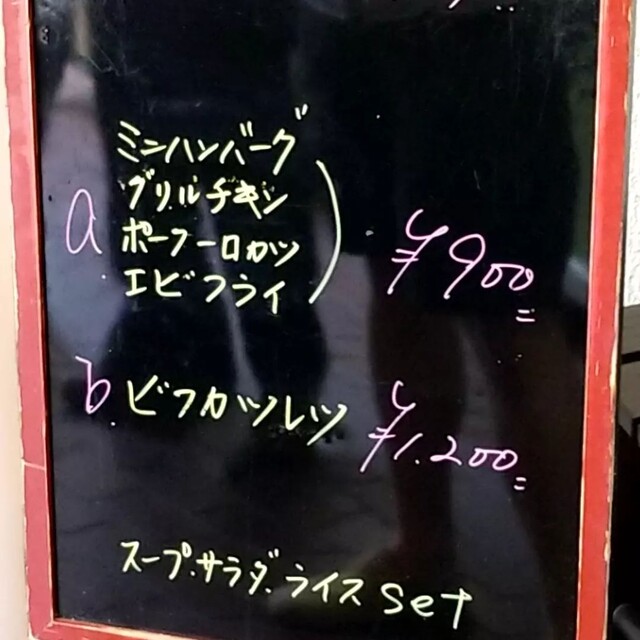 a
ミニハンバーグ
グリルチキン
ポークーロカツ
エビフライ
¥900
b ビフカツレツ ¥1.200
スープ.サラダ.ライス set